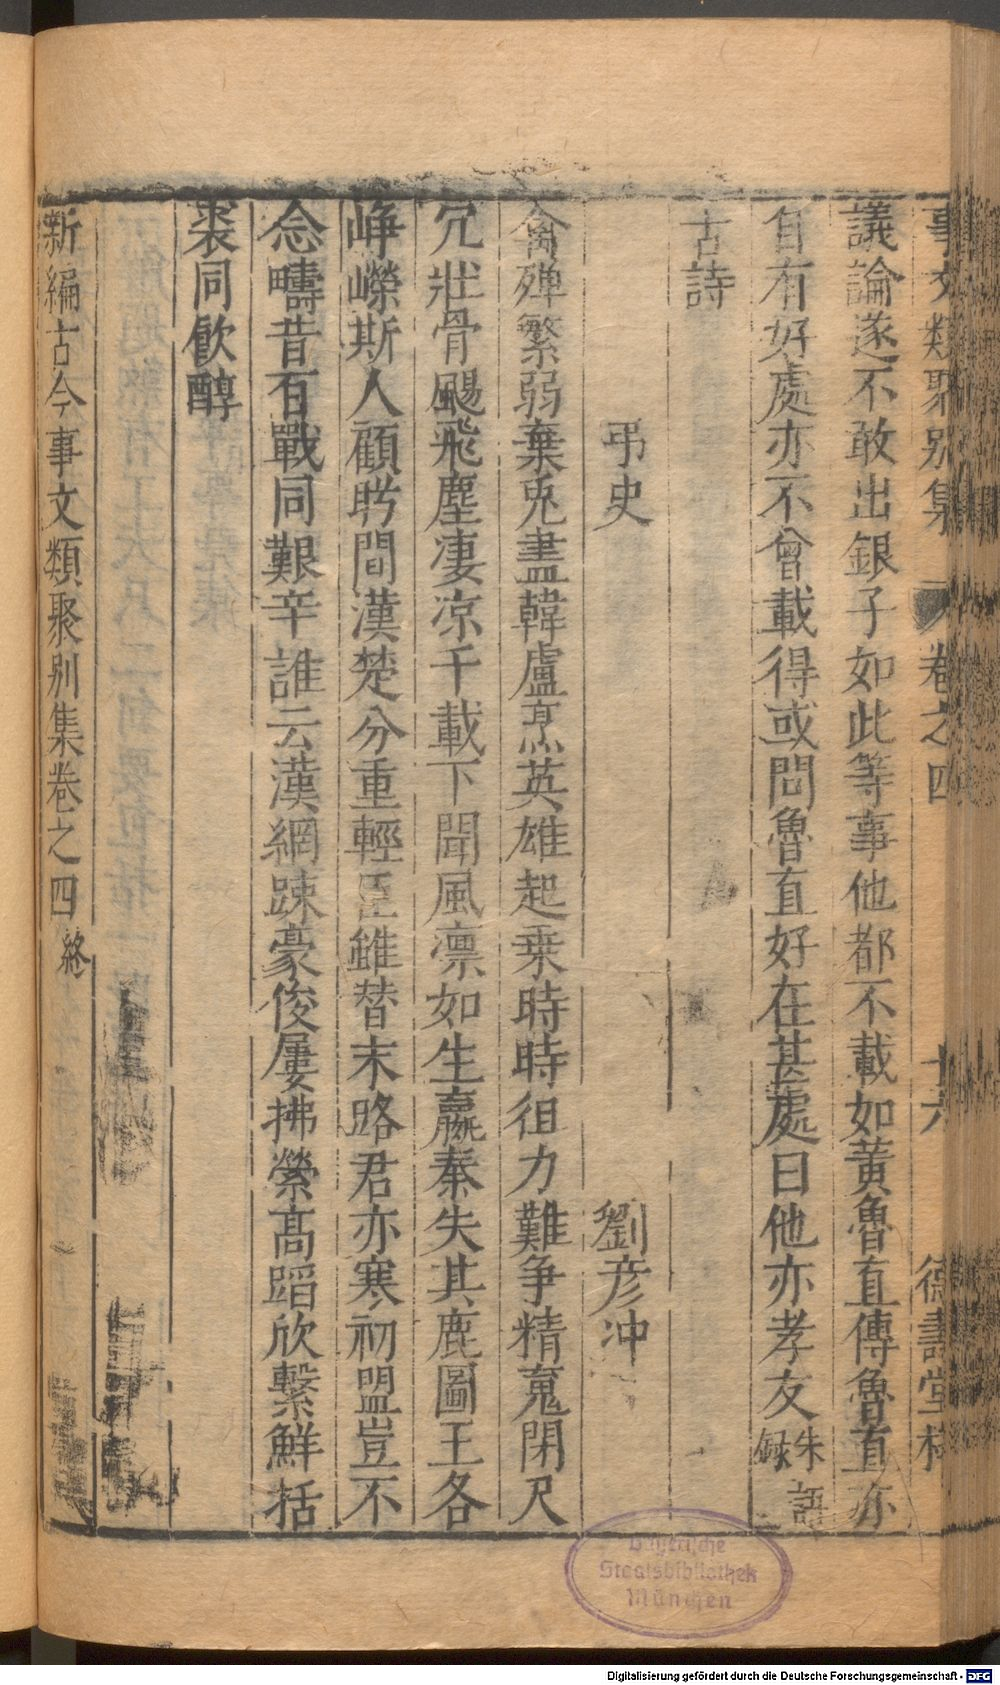 事文類聚别集 卷之四 十六 德壽堂梓
議論遂不敢出銀子如此等事他都不載如黄魯直傳魯直亦
自有好處亦不曾載得或問魯直好在甚處曰他亦孝友朱語
録
古詩
弔史 劉彦冲
禽殫繁弱棄兎盡韓盧烹英雄起乗時時徂力難争精䰟閉尺
冗壯骨颺飛塵凄凉千載下聞風凛如生嬴秦失其鹿圖王各
峥嶸斯人顧眄間漢楚分重輕臣雖替末路君亦寒初盟豈不
念疇昔百戰同艱辛誰云漢網踈豪俊屢拂縈髙蹈欣繋鮮括
裘同飮醇
新編古今事文類聚别集卷之四 終
Bayerische
Staatsbibliothek
München
Digitalisierung gefördert durch die Deutsche Forschungsgemeinschaft - DFG